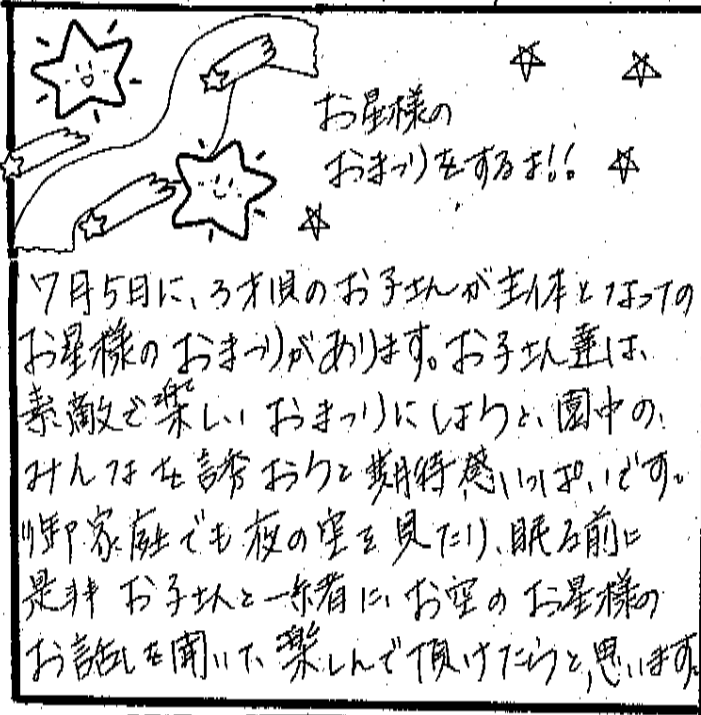 お星様の
おまつりをするよ!!
7月5日に、3才児のお子さんが主体となっての
お星様のおまつりがあります。お子さん達は、
素敵で楽しいおまつりにしようと、園中の、
みんなを誘おうと期待感いっぱいです。
御家庭でも夜の空を見たり、眠る前に
是非お子さんと一緒に、お空のお星様の
お話しを聞いて、楽しんで頂けたらと、思います。